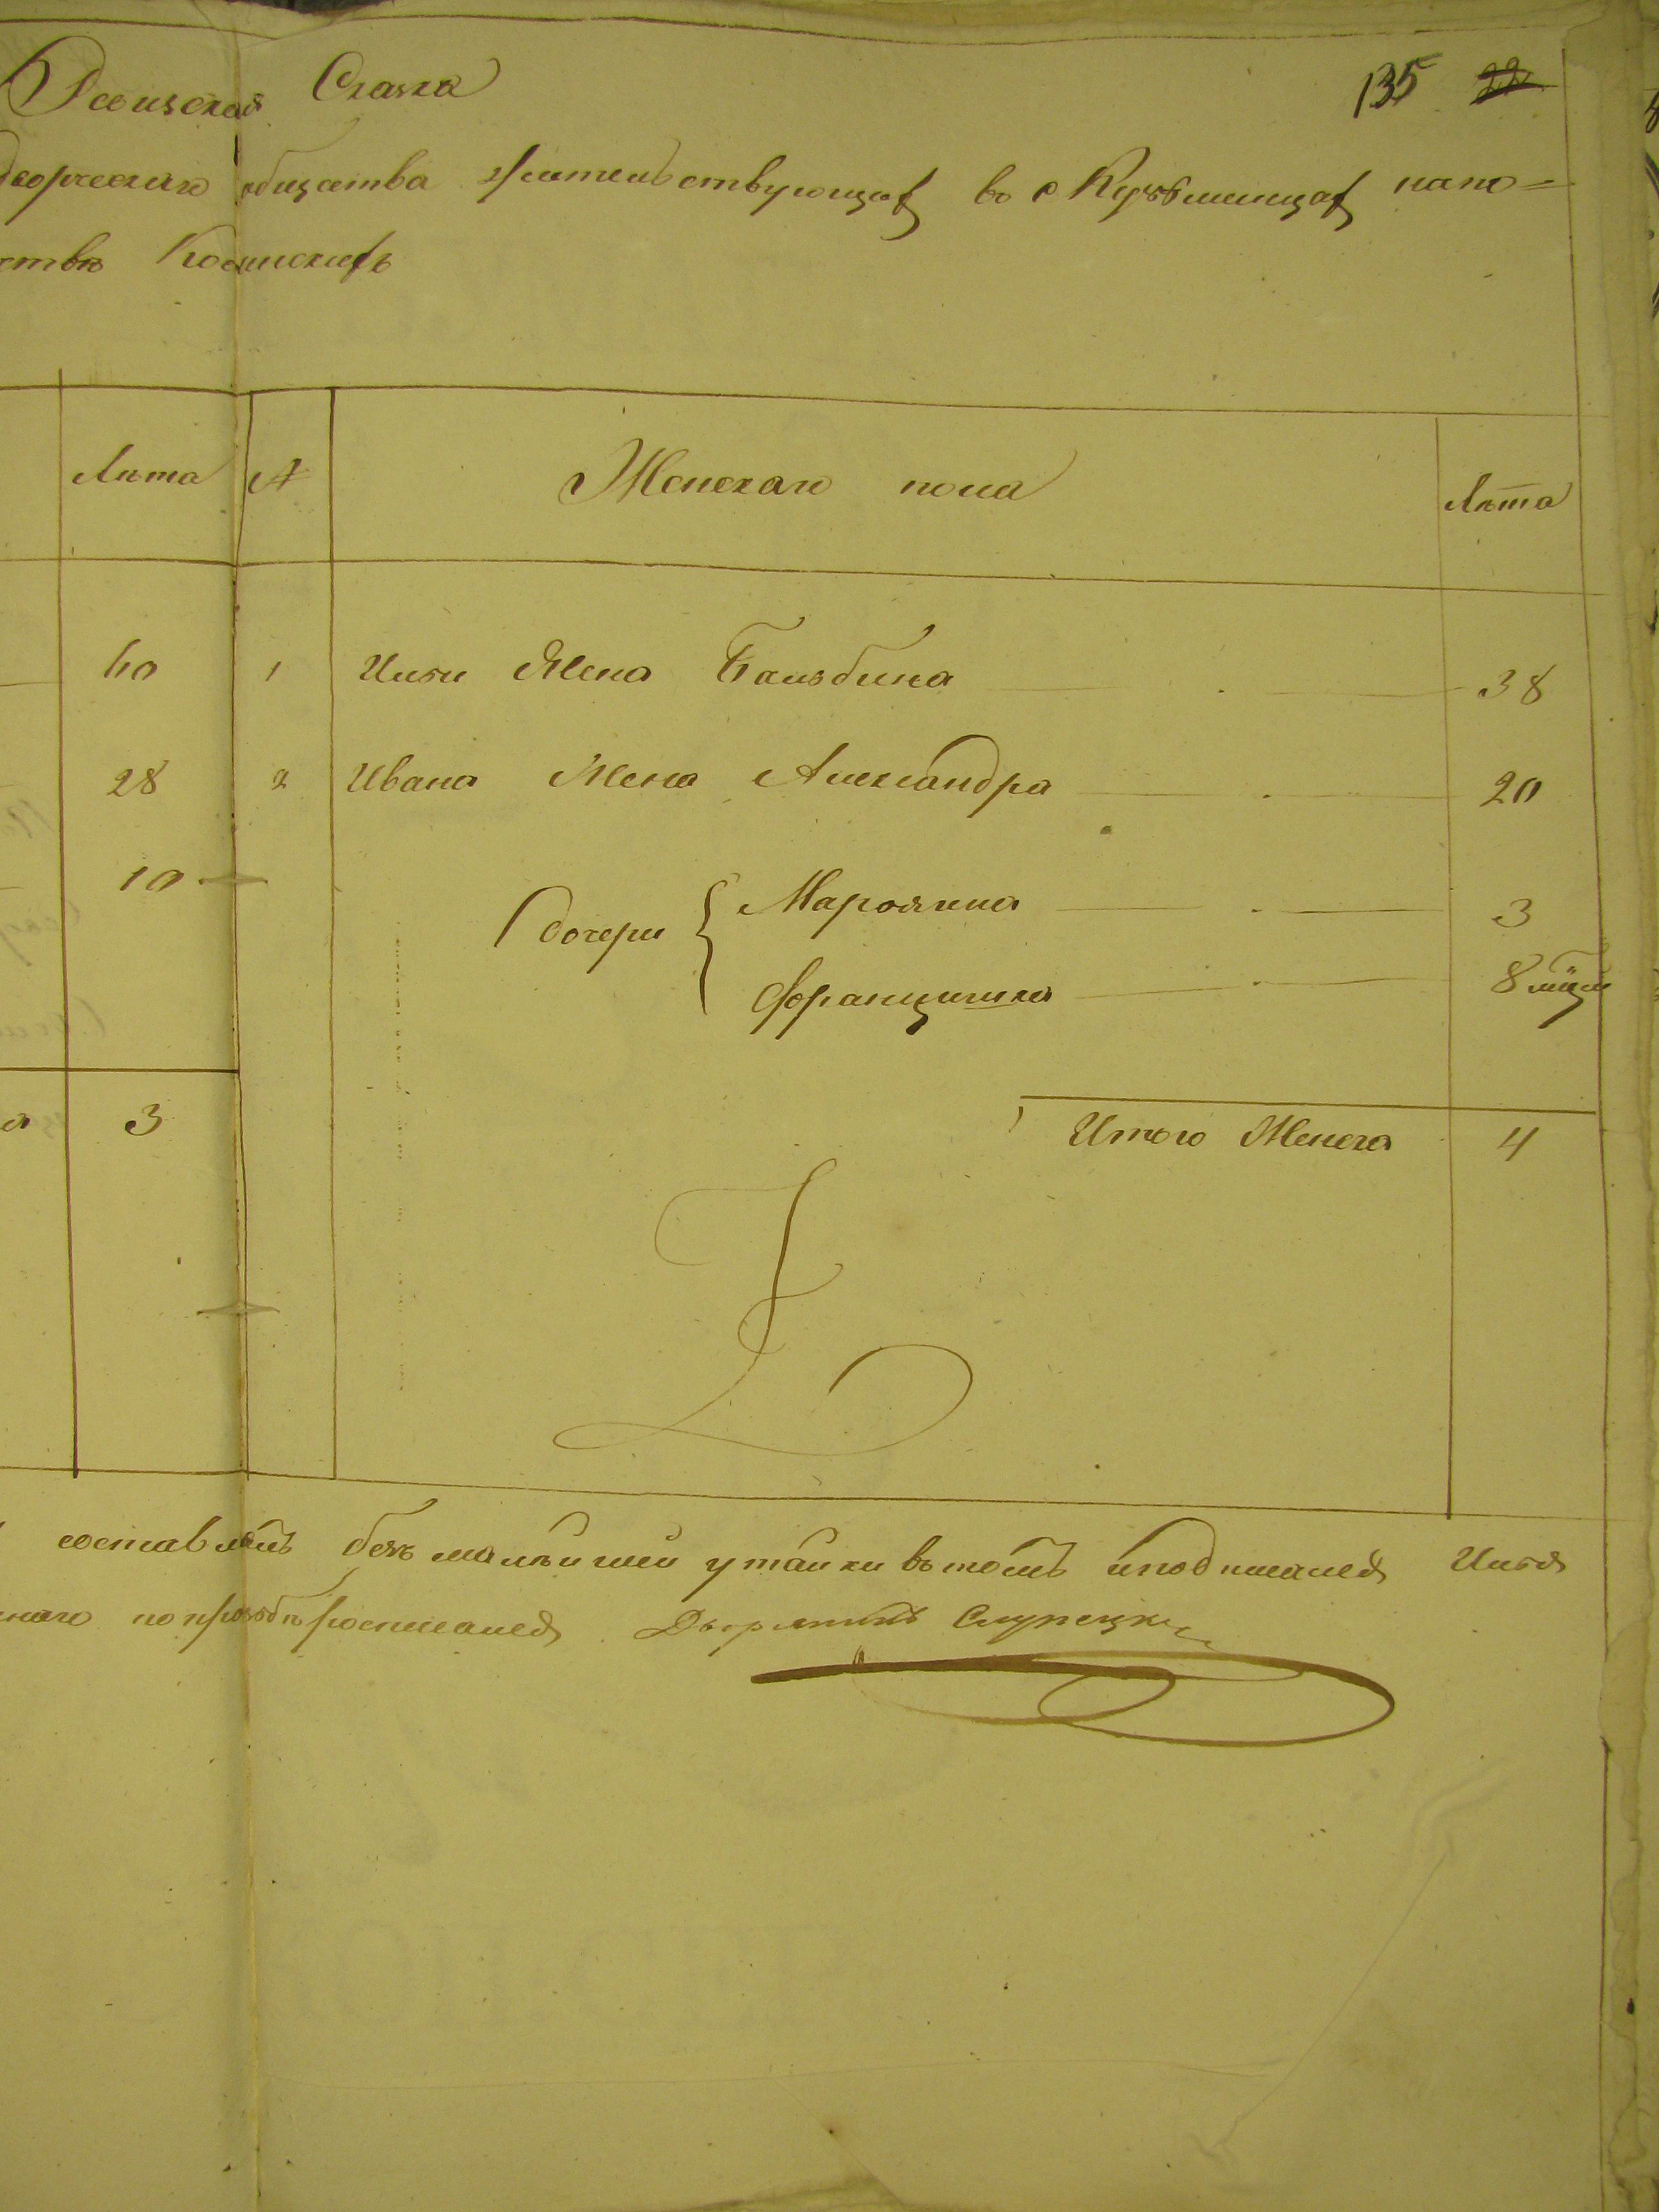 Ревизская Сказка 135 22
дворческаго общества жительствующаго во с Кузьминцах напо=
ствѣ Косинскихъ
Лѣта № Женскаго пола Лѣта
60 1 Ильи Жена Бальбина 38
28 2 Ивана Жена Александра 20
10
дочери { Марьянна 3
Францишка 8 мцы
3 Итого Женска 4
составленъ безъ малѣйшей утайки въ томъ и подписался Илья
по прозьбѣ росписался Дворянинъ Слупецкий